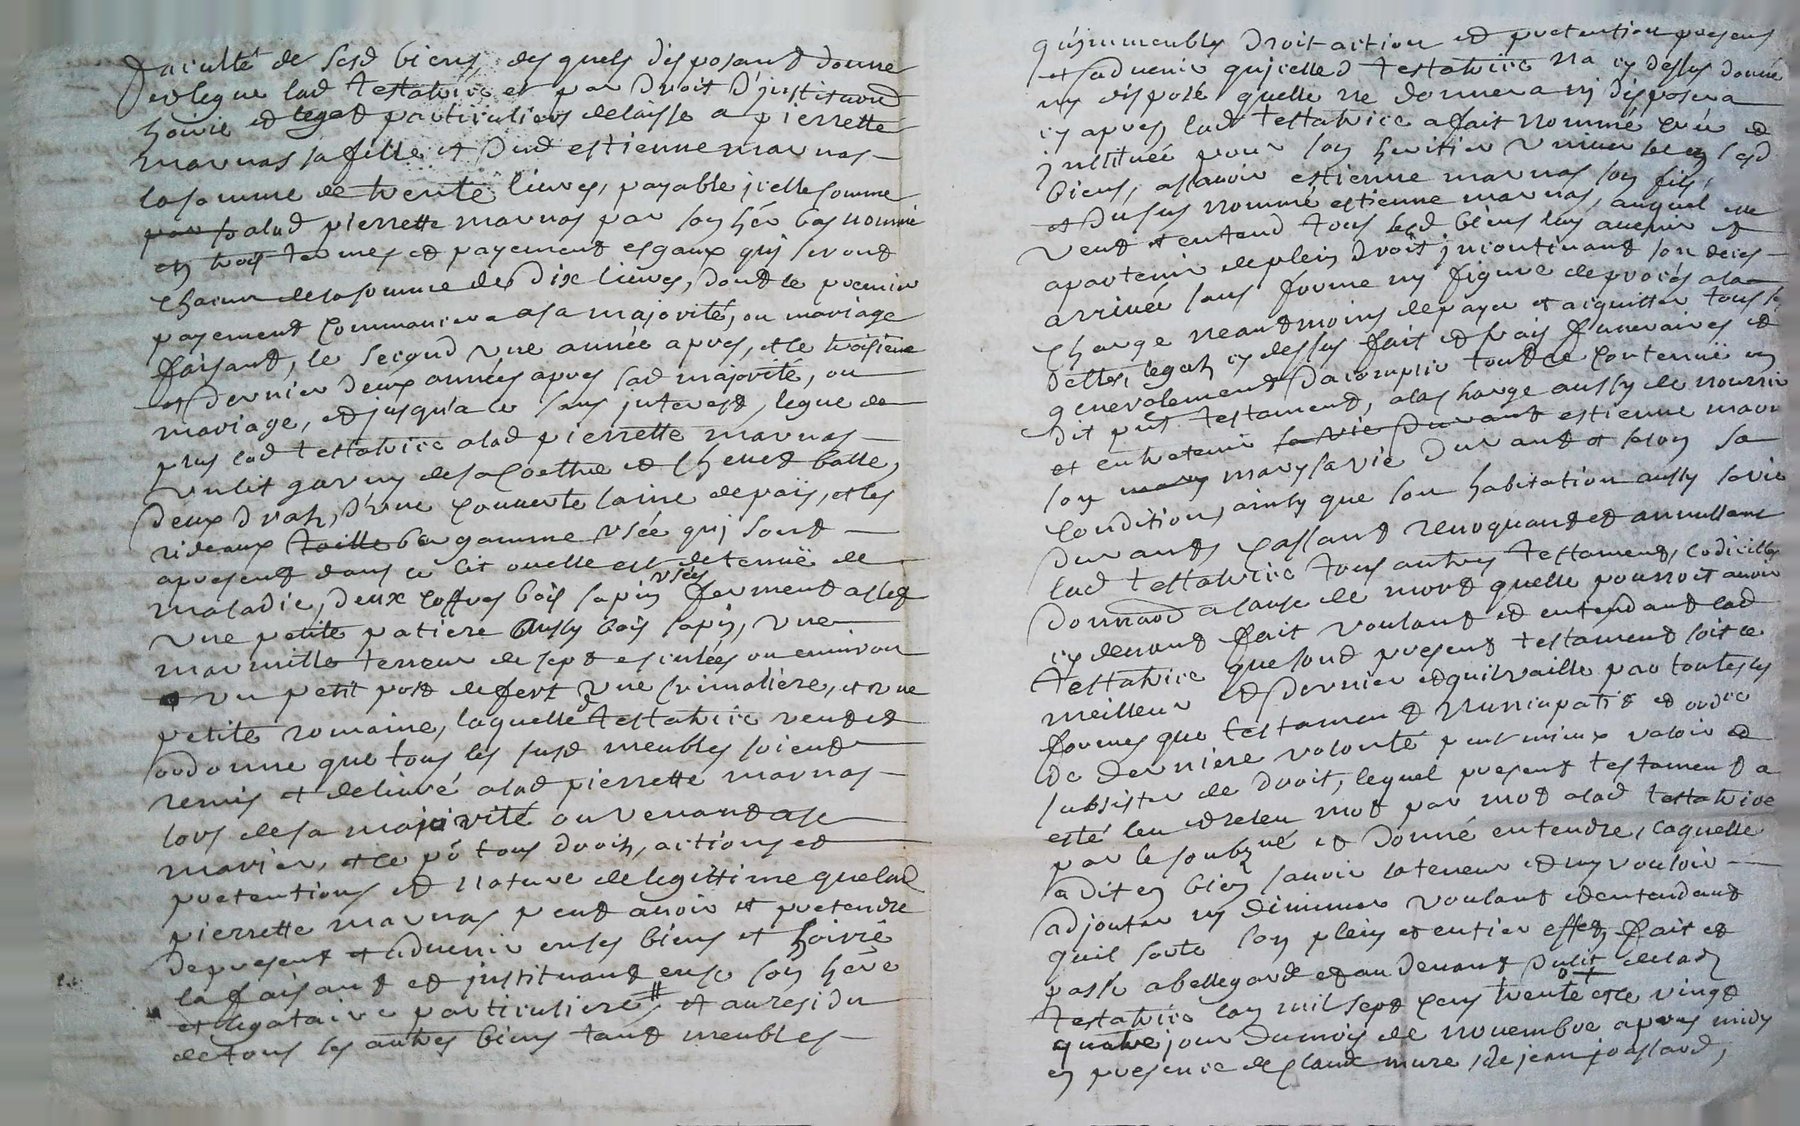 faculté de sesd biens desquels disposant donne
et legue lad testatrice et par droit d'institution
hoirie et legat particuliers delaisse a pierrette
marnas sa fille et dud estienne marnas
la somme de trente livres, payable jcelle somme
par so alad pierrette marnas par son hér bas nommé
en trois termes et payement esgaux qui seront
chacun de la somme de dix livres, dont le premier
payement commancera a sa majorité, ou mariage
faisant, le second une année apres, et le troisieme
et dernier deux années apres sad majorité, ou
mariage, et jusqu'a ce sans interest, legue de
plus lad testatrice alad pierrette marnas
un lit garny de sa coettre et chevet balle,
deux draps, d'une couverte laine de païs, et les
rideaux toille bergamme usée qui sont
apresent dans ce lit ou elle est detenuë de
maladie, deux coffres bois sapin usés fermant a clef
une petite patiere aussy bois sapin, une
marmitte terreur de sept escules ou environ
un petit post de fert, une crimaliere, et une
petite romaine, laquelle testatrice veut et
ordonne que tous les susd meubles soient
remis et delivré alad pierrette marnas
lors de sa majorité ou venant a se
marier, et ce pr tous droits, actions et
pretentions et nature de legittime que lad
pierrette marnas peut avoir et pretendre
de present et advenir en ses biens et hoirie
la faisant et instituant en ce son here
et legataire particuliere # et au residu
de tous les autres biens tant meubles
qu'immeubles droit action et pretention presens
et advenir qu'icelled testatrice n'a cy dessus donné
ny disposé quelle ne donnera ni disposera
cy apres, lad testatrice a fait nommé créé et
instituée pour son heritier universel en sesd
biens, assavoir estienne marnas son fils,
et du sus nommé estienne marnas, auquel elle
veut et entend tous sesd biens luy avenir et
apartenir de plein droit incontinant son deces
arrivée sans forme ny figure de procés a la
charge neantmoins de payer et acquitter tous ses
dettes, legats cy dessus fait et frais funeraires et
generalement d'acomplir tout le contenuë en
dit pnt testament, a la charge aussy de nourrir
et entretenir sa vie durant estienne marnas
son mary mary sa vie durant et selon sa
condition, ainsy que son habitation aussy sa vie
durants, cassant revoquant et annullant
lad testatrice tous autres testament, codicilles
donnaon a cause de mort quelle pourroit avoir
cy devant fait voulant et entendant lad
testatrice que sond present testament soit le
meilleur et dernier et quil vaille par toutes les
formes que testament nuncupatif et ordre
de derniere volonté peut mieux valoir et
subsister de droit, lequel present testament a
esté leu et releu mot par mot alad testatrice
par le soubzné et donné entendre, laquelle
a dit en bien savoir la teneur et ny vouloir
adjouter ny diminuer voulant et entendant
quil sorte son plein et entier effet, fait et
passé a bellegarde et au devant du lit de lad
testatrice lan mil sept cens trente et le vingt
quatre jour du mois de novembre apres midy
en presence de claude mure, de jean joassard,